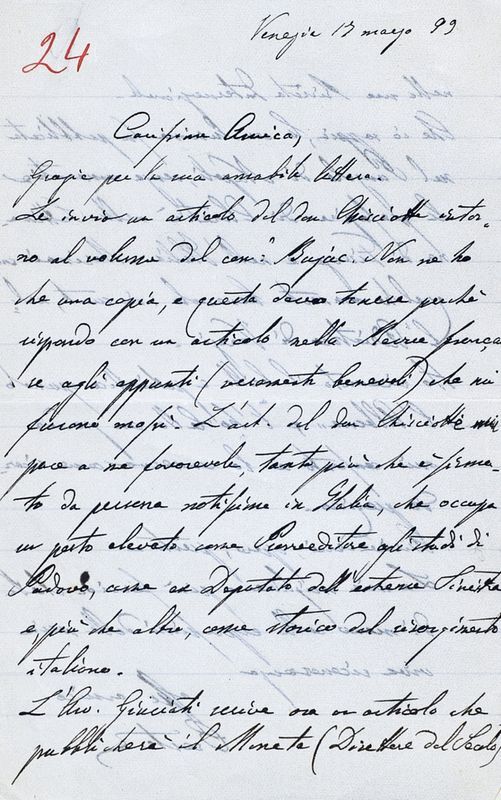 24
Venezia 17 marzo 99
Carissimo Amico,
Grazie per la sua amabile lettera.
Le invio un articolo del don Chisciotte intor-
no al volume del con: Bujac. Non ne ho
che una copia, e questa devo tenere perché
rispondo con un articolo nella Revue françai
se agli appunti (veramente benevoli) che mi
furono mossi. L'art. del don Chisciotte mi
pare a me favorevole, tanto più che è firma-
to da persona notissima in Italia, che occupa
un posto elevato come Provveditore agli studi di
Padova, come ex Deputato dell'estrema Sinistra
e, più che altro, come storico del risorgimento
italiano.
L'Avv. Giuriati scrive ora un articolo che
pubblicherà il Moneta (Direttore del Secolo)